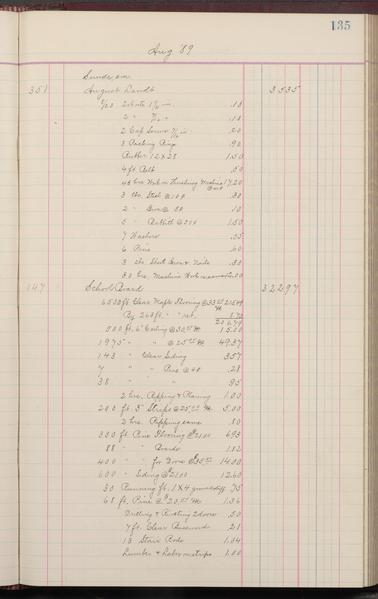 135
Aug '89
Sundries
351 August Dandt 3535
7/20 2 bolts 1 1/2 in. .10
2 " 7/16 " .10
2 Cap Screws 7/16 in. .20
3 Packing Rings .90
Rubber 12 x 28 1.50
4 ft. Belt .50
43 hrs. Work on Thrashing Machine 17.20
3 lbs. Steel @ 10¢ .30
2 " Iron @ .10
5 " Babbitt @ 30¢ 1.50
7 Washers .35
6 Pins .60
3 lbs. Sheet Iron & Nails .30
30 hrs. Machine Work
147 School Board 32297
6503 ft. Clear Maple Flooring @ 33.00 M
By 263 ft. " " ret.
500 ft. 6" Ceiling @ 30.00 M 15.00
1975 " " @ 25.00 M 49.37
143 " Clear Siding 3.57
7 " " Pine @ 40 .28
38 " " .95
2 hrs. Ripping & Planing 1.00
200 ft. 5" Strips @ 25.00 M 5.00
2 hrs. Ripping same .80
330 ft. Pine Flooring @ 21.00 6.93
88 " " Boards 1.82
400 " " for Doors @ 35.00 14.00
600 " Siding @ 21.00 12.60
50 Running ft. 1 x 4 .75
68 ft. Pine @ 20.00 M 1.36
Drilling & 2 doors .50
7 ft. Clear Basswood .28
13 Stair Rods 1.04
Lumber & Labor on strips 1.00